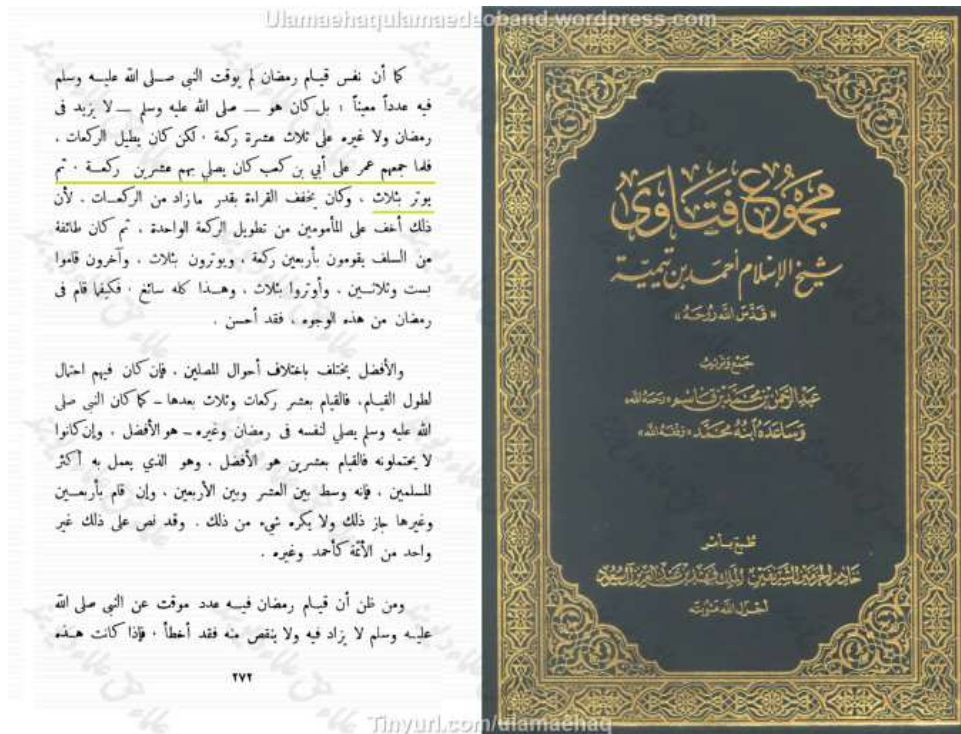 Ulamaehaqulamaedeoband.wordpress.com
كما أن نفس قيـام رمضان لم يوقت النبي صـلى الله عليـه وسلم
فيه عدداً معيناً ؛ بل كان هو — صلى الله عليه وسلم — لا يزيد فى
رمضان ولا غيره على ثلاث عشرة ركعة ، لكن كان يطيل الركعات ،
فلما جمعهم عمر على أبي بن كعب كان يصلي بهم عشرين ركعـة ، ثم
يوتر بثلاث ، وكان يخفف القراءة بقدر ما زاد من الركعـات ، لأن
ذلك أخف على المأمومين من تطويل الركعة الواحدة ، ثم كان طائفة
من السلف يقومون بأربعين ركعة ، ويوترون بثلاث ، وآخرون قاموا
بست وثلاثـين ، وأوتروا بثلاث ، وهـذا كله سائغ ، فكيفما قام فى
رمضان من هذه الوجوه ، فقد أحسن .
والأفضل يختلف باختلاف أحوال المصلين ، فإن كان فيهم احتمال
لطول القيـام، فالقيام بعشر ركعات وثلاث بعدها ـ كما كان النبي صلى
الله عليه وسلم يصلي لنفسه فى رمضان وغيره ـ هو الأفضل ، وإن كانوا
لا يحتملونه فالقيام بعشرين هو الأفضل ، وهو الذي يعمل به أكثر
المسلمين ، فإنه وسط بين العشر وبين الأربعين ، وإن قام بأربعـين
وغيرها جاز ذلك ولا يكره شيء من ذلك . وقد نص على ذلك غير
واحد من الأئمة كأحمد وغيره .
ومن ظن أن قيـام رمضان فيـه عدد موقت عن النبي صلى الله
عليـه وسلم لا يزاد فيه ولا ينقص منه فقد أخطأ ، فإذا كانت هـذه
٢٧٢
مجموع فتاوى
شيخ الإسلام أحمد بن تيمية
« قدس الله روحه »
جمع وترتيب
عبد الرحمن بن محمد بن قاسم « رحمه الله »
وساعده ابنه محمد « وفقه الله »
طبع بأمر
خادم الحرمين الشريفين الملك فهد بن عبد العزيز آل سعود
أجزل الله مثوبته
Tinyurl.com/ulamaehaq